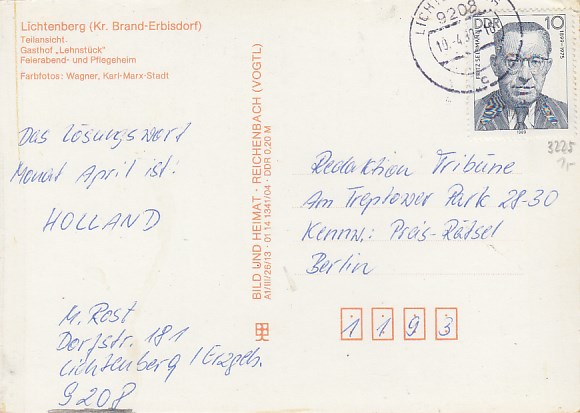 Lichtenberg (Kr. Brand-Erbisdorf)
Teilansicht
Gasthof „Lehnstück"
Feierabend- und Pflegeheim
Farbfotos: Wagner, Karl-Marx-Stadt
9208
DDR
10
FRITZ SELBMANN
1899-1975
1989
3225
Das Lösungswort
Monat April ist:
HOLLAND
M. Rost
Dorfstr. 181
Lichtenberg / Erzgeb.
9208
BILD UND HEIMAT · REICHENBACH (VOGTL)
A1/III/26/13 · 01 14 1341/04 · DDR 0,20 M
Redaktion Tribüne
Am Treptower Park 28-30
Kennw.: Preis-Rätsel
Berlin
1193